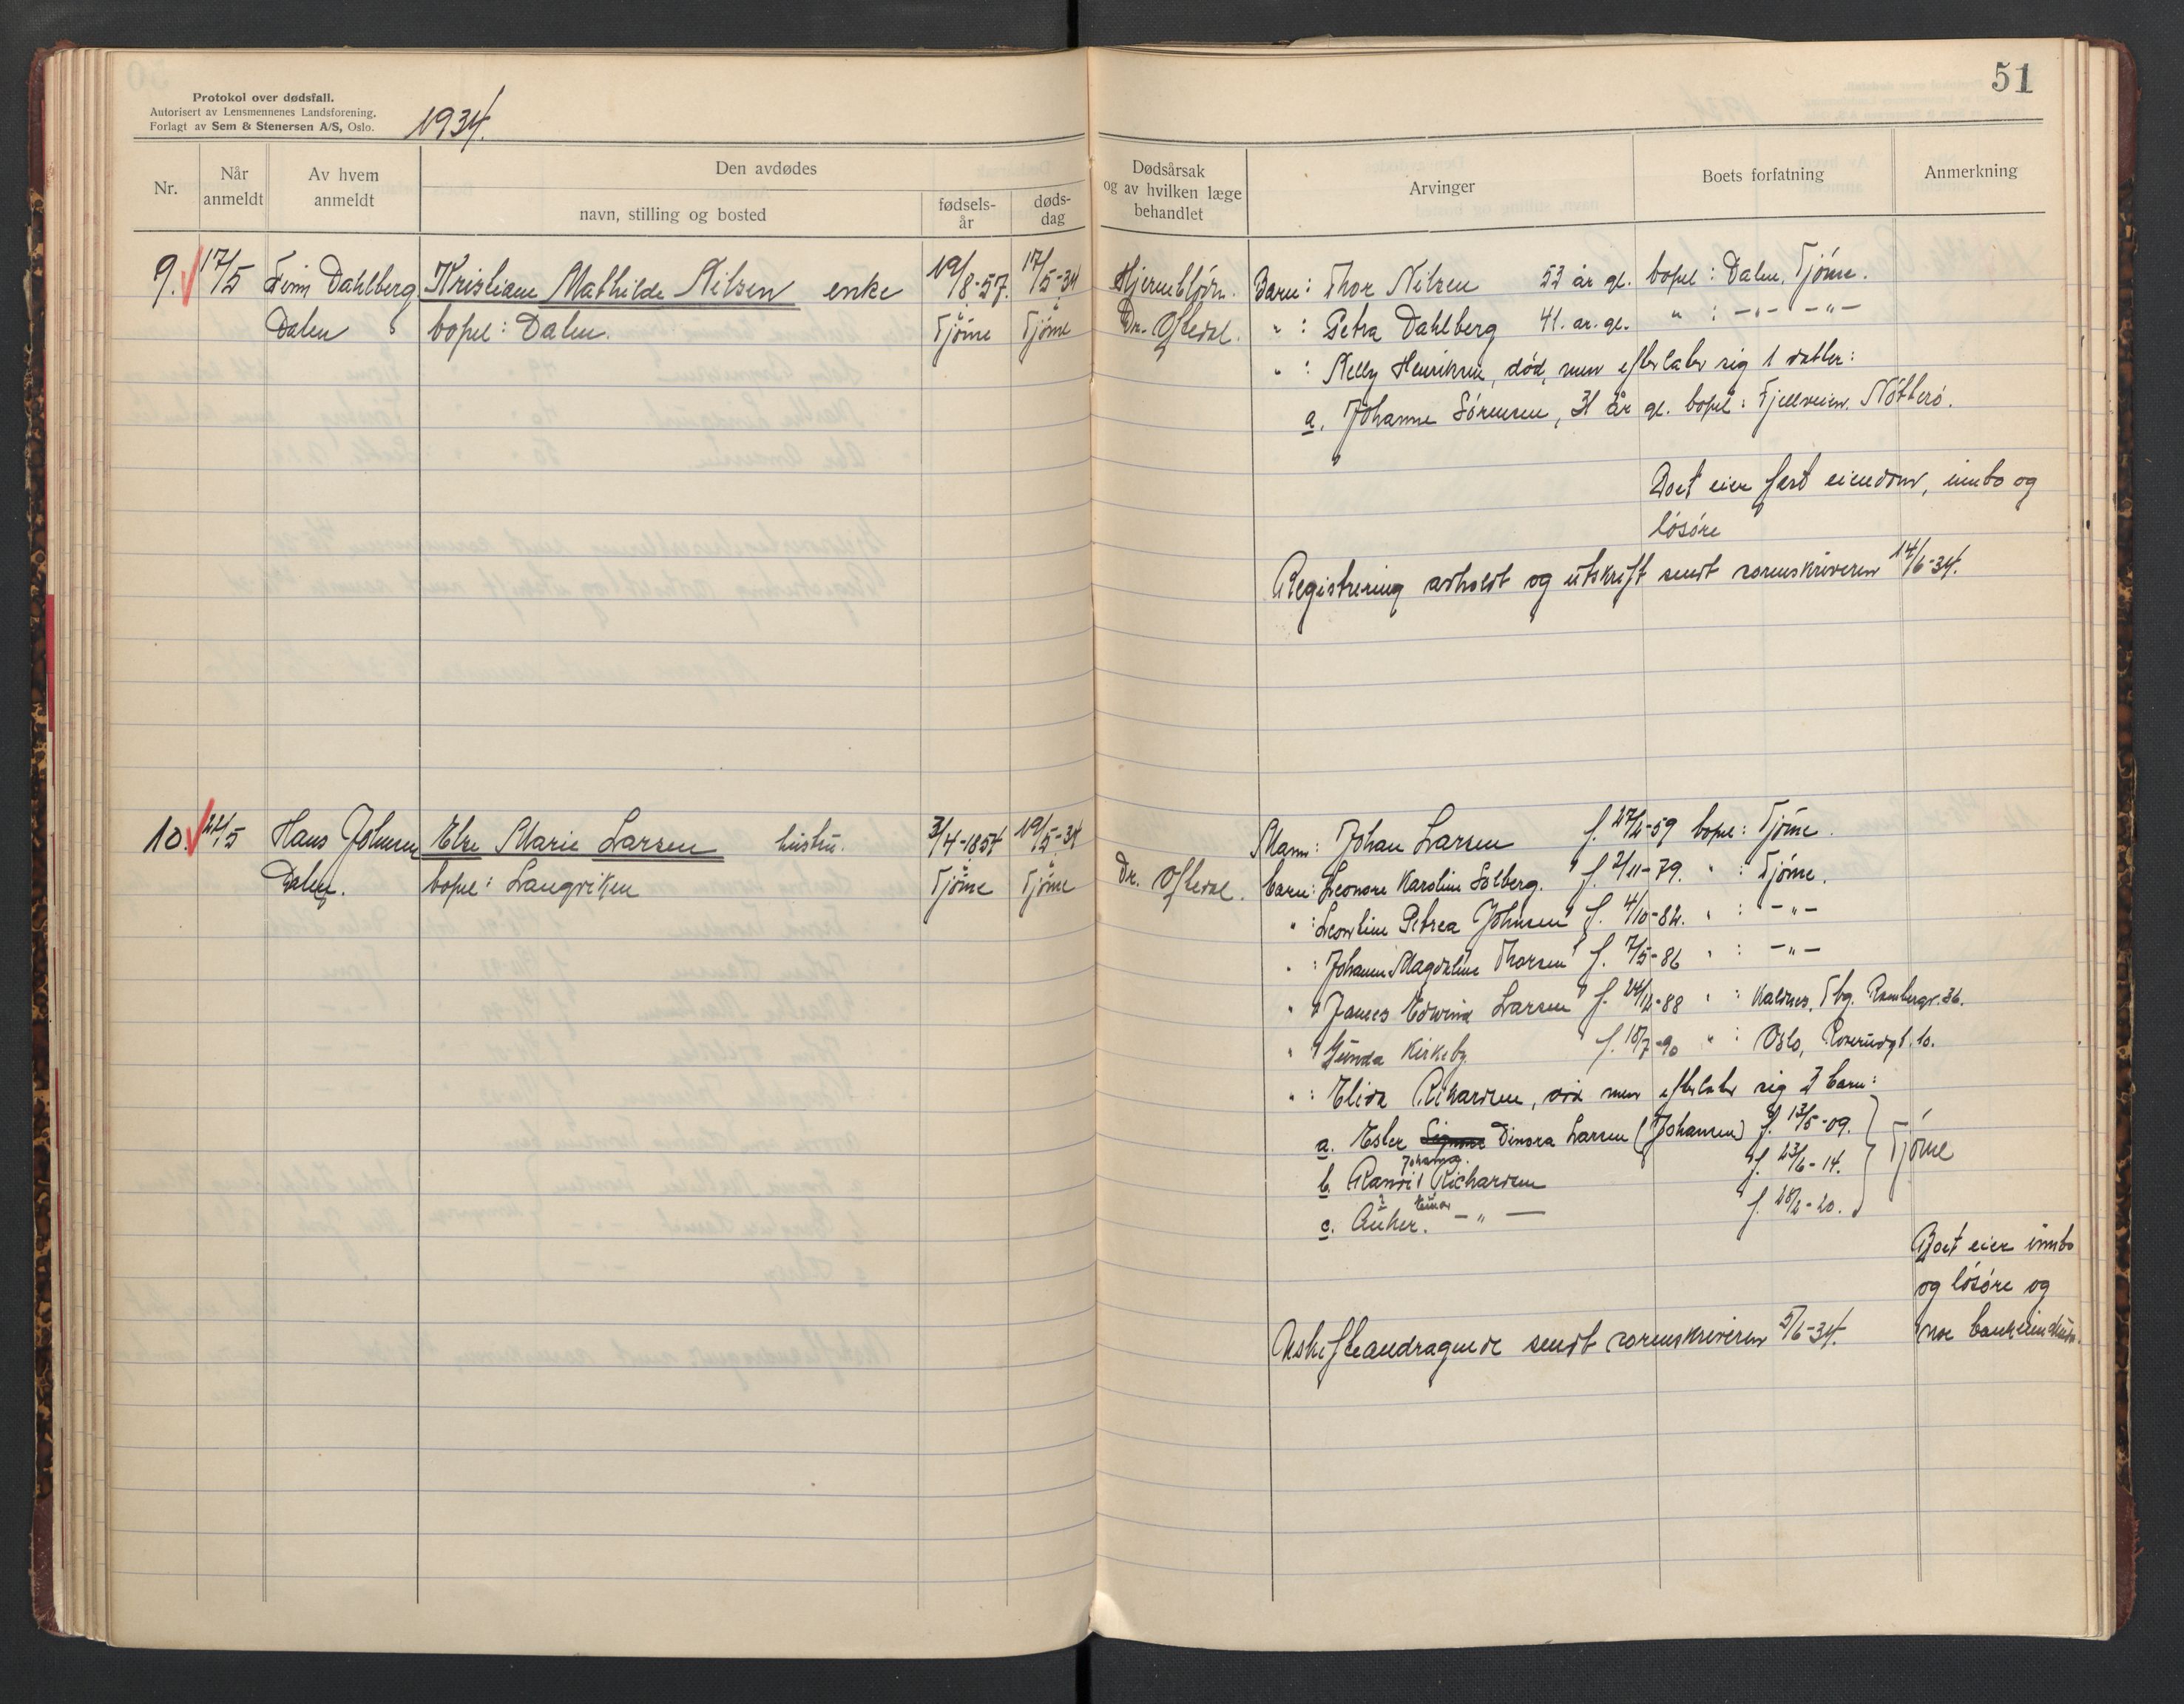 51
Protokol over dødsfall.
Autorisert av Lensmennenes Landsforening.
Forlagt av Sem & Stenersen A/S, Oslo.
1934.
Nr.
Når anmeldt
Av hvem anmeldt
Den avdødes
navn, stilling og bosted
fødsels-år
døds-dag
Dødsårsak og av hvilken læge behandlet
Arvinger
Boets forfatning
Anmerkning
9. 17/5 Finn Dahlberg Kristiane Mathilde Nilsen enke 19/8-57. 17/5-34 Hjerneblødn. Barn: Thor Nilsen 53 år gl. bopel: Dalen, Tjöme.
Dalen bopel: Dalen. Tjöme Tjöme Dr. Oftedal. " : Petra Dahlberg 41. år. gl. " : -"- -"-
" : Nelly Henriksen, död, men efterlater sig 1 datter:
a. Johanne Sörensen, 31 år gl. bopel: Fjellveien. Nötterö.
Boet eier fast eiendom, innbo og
lösöre
Registrering avholdt og utskrift sendt sorenskriveren 14/6-34.
10. 22/5 Hans Johnsen Else Marie Larsen hustru. 3/4-1857 19/5-34 Mann: Johan Larsen f. 27/2-59 bopel: Tjöme.
Dalen. bopel: Langviken Tjöme Tjöme Dr. Oftedal. barn: Leonore Karoline Solberg. f. 2/11-79. " : Tjöme.
" : Leontine Petrea Johnsen f. 4/10-82. " : -"-
" : Johanne Magdaline Thorsen f. 7/5-86 " : -"-
" James Edwind Larsen f. 24/12-88 " : Kaldnes, Tbg. Rambergv. 36.
" Gunda Kirkeby f. 18/7-90 " : Oslo, 10.
" : Elida Rikardsen, död men efterlater sig 3 barn:
a. Ester Dinora Larsen (Johansen) f. 13/5-09.
b. Randi Johanna. Richardsen f. 23/6-14. Tjöme
c. Anker. -"- f. 28/2-20.
Boet eier innbo
og lösöre og
noe bankinnskudd.
Uskifteandragende sendt sorenskriveren 5/6-34.